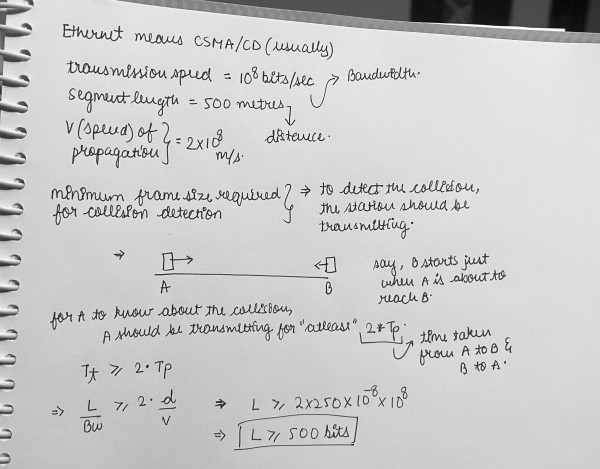 Ethernet means CSMA/CD (usually)
transmission speed = 10⁸ bits/sec → Bandwidth.
segment length = 500 metres → distance.
V (speed) of propagation } = 2×10⁸ m/s.
minimum frame size required for collision detection } ⇒ to detect the collision,
the station should be
transmitting.
⇒ A B
say, B starts just
when A is about to
reach B.
for A to know about the collision,
A should be transmitting for "atleast" 2*Tp.
→ time taken
from A to B &
B to A.
Tt ⩾ 2·Tp
⇒ L/Bw ⩾ 2·d/v ⇒ L ⩾ 2×250×10⁻⁸×10⁸
⇒ L ⩾ 500 bits